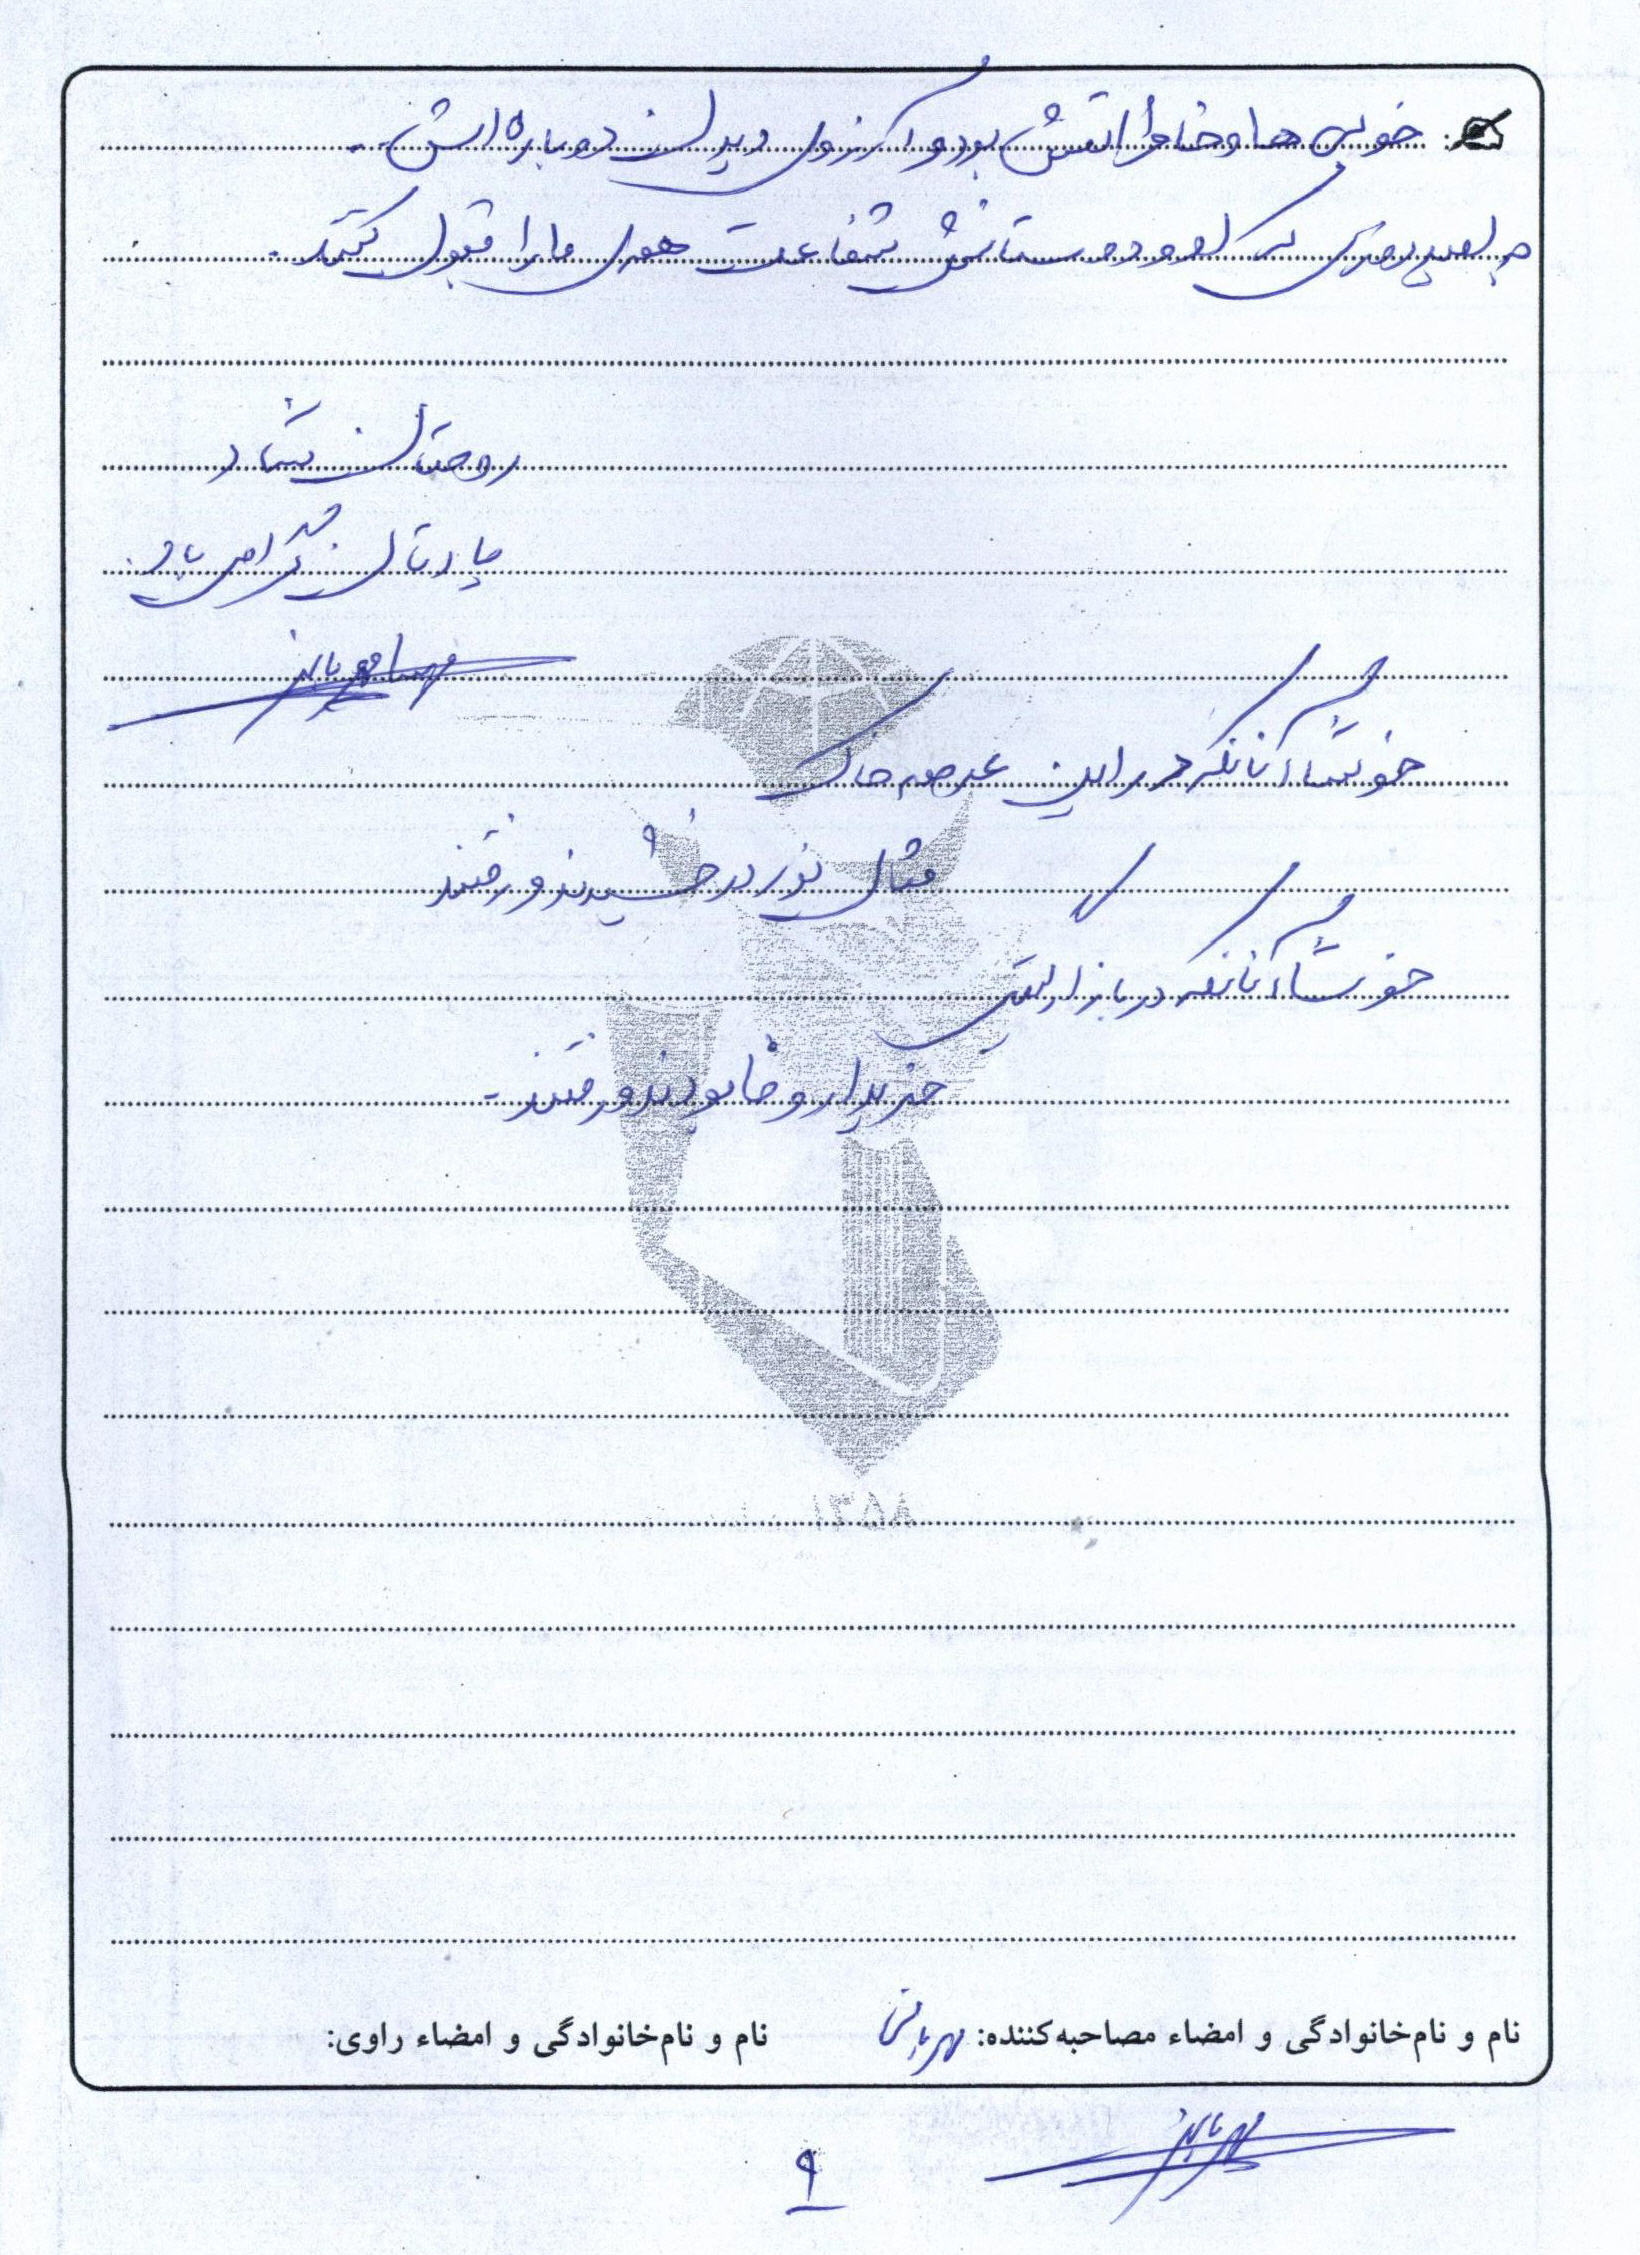 خوبی ها و خاطراتش بود و آرزوی دیدار دوباره اش..
به امید روزی که او و دوستانش شفاعت همه ی ما را قبول کنند.
روحتان شاد
یادتان گرامی باد.
خوشا آنانکه در این عرصه خاک
مثال نور درخشیدند و رفتند
خوشا آنانکه در بازار گیتی
خریدار وفا بودند و رفتند.
نام و نام‌خانوادگی و امضاء مصاحبه‌کننده: مهربانی
نام و نام‌خانوادگی و امضاء راوی:
۹